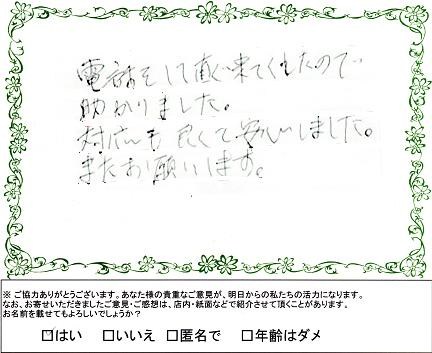 電話をして直ぐ来てくれたので
助かりました。
対応も良くて安心しました。
またお願いします。
※ ご協力ありがとうございます。あなた様の貴重なご意見が、明日からの私たちの活力になります。
なお、お寄せいただきましたご意見・ご感想は、店内・紙面などで紹介させて頂くことがあります。
お名前を載せてもよろしいでしょうか？
□はい □いいえ □匿名で □年齢はダメ